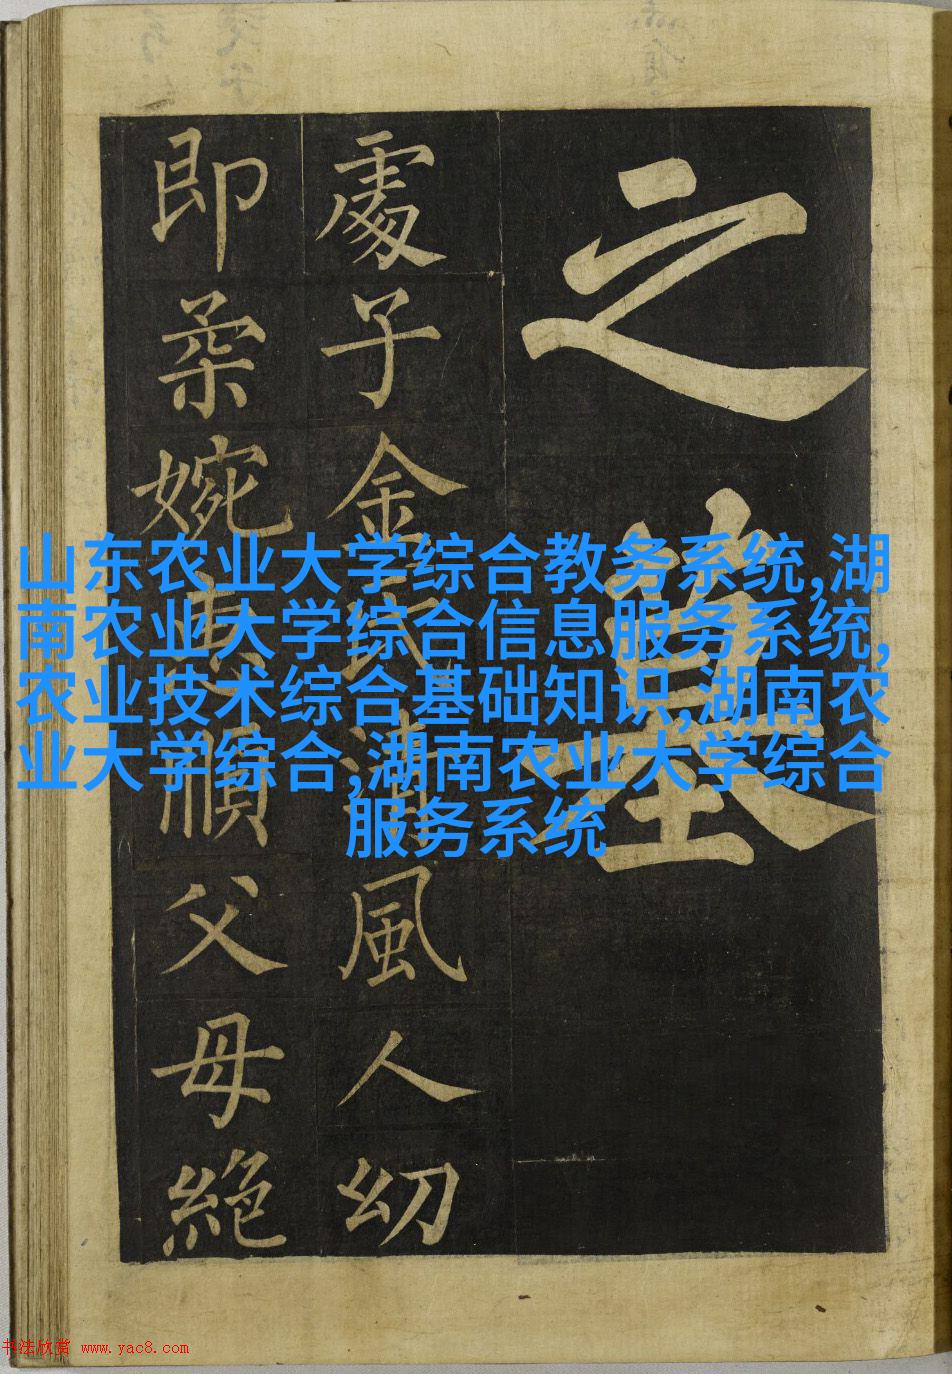 之墓
處子金氏清風人幼
即柔婉貞順父母絶
山东农业大学综合教务系统,湖
南农业大学综合信息服务系统,
农业技术综合基础知识,湖南农
业大学综合,湖南农业大学综合
服务系统
书法欣赏 www.yac8.com